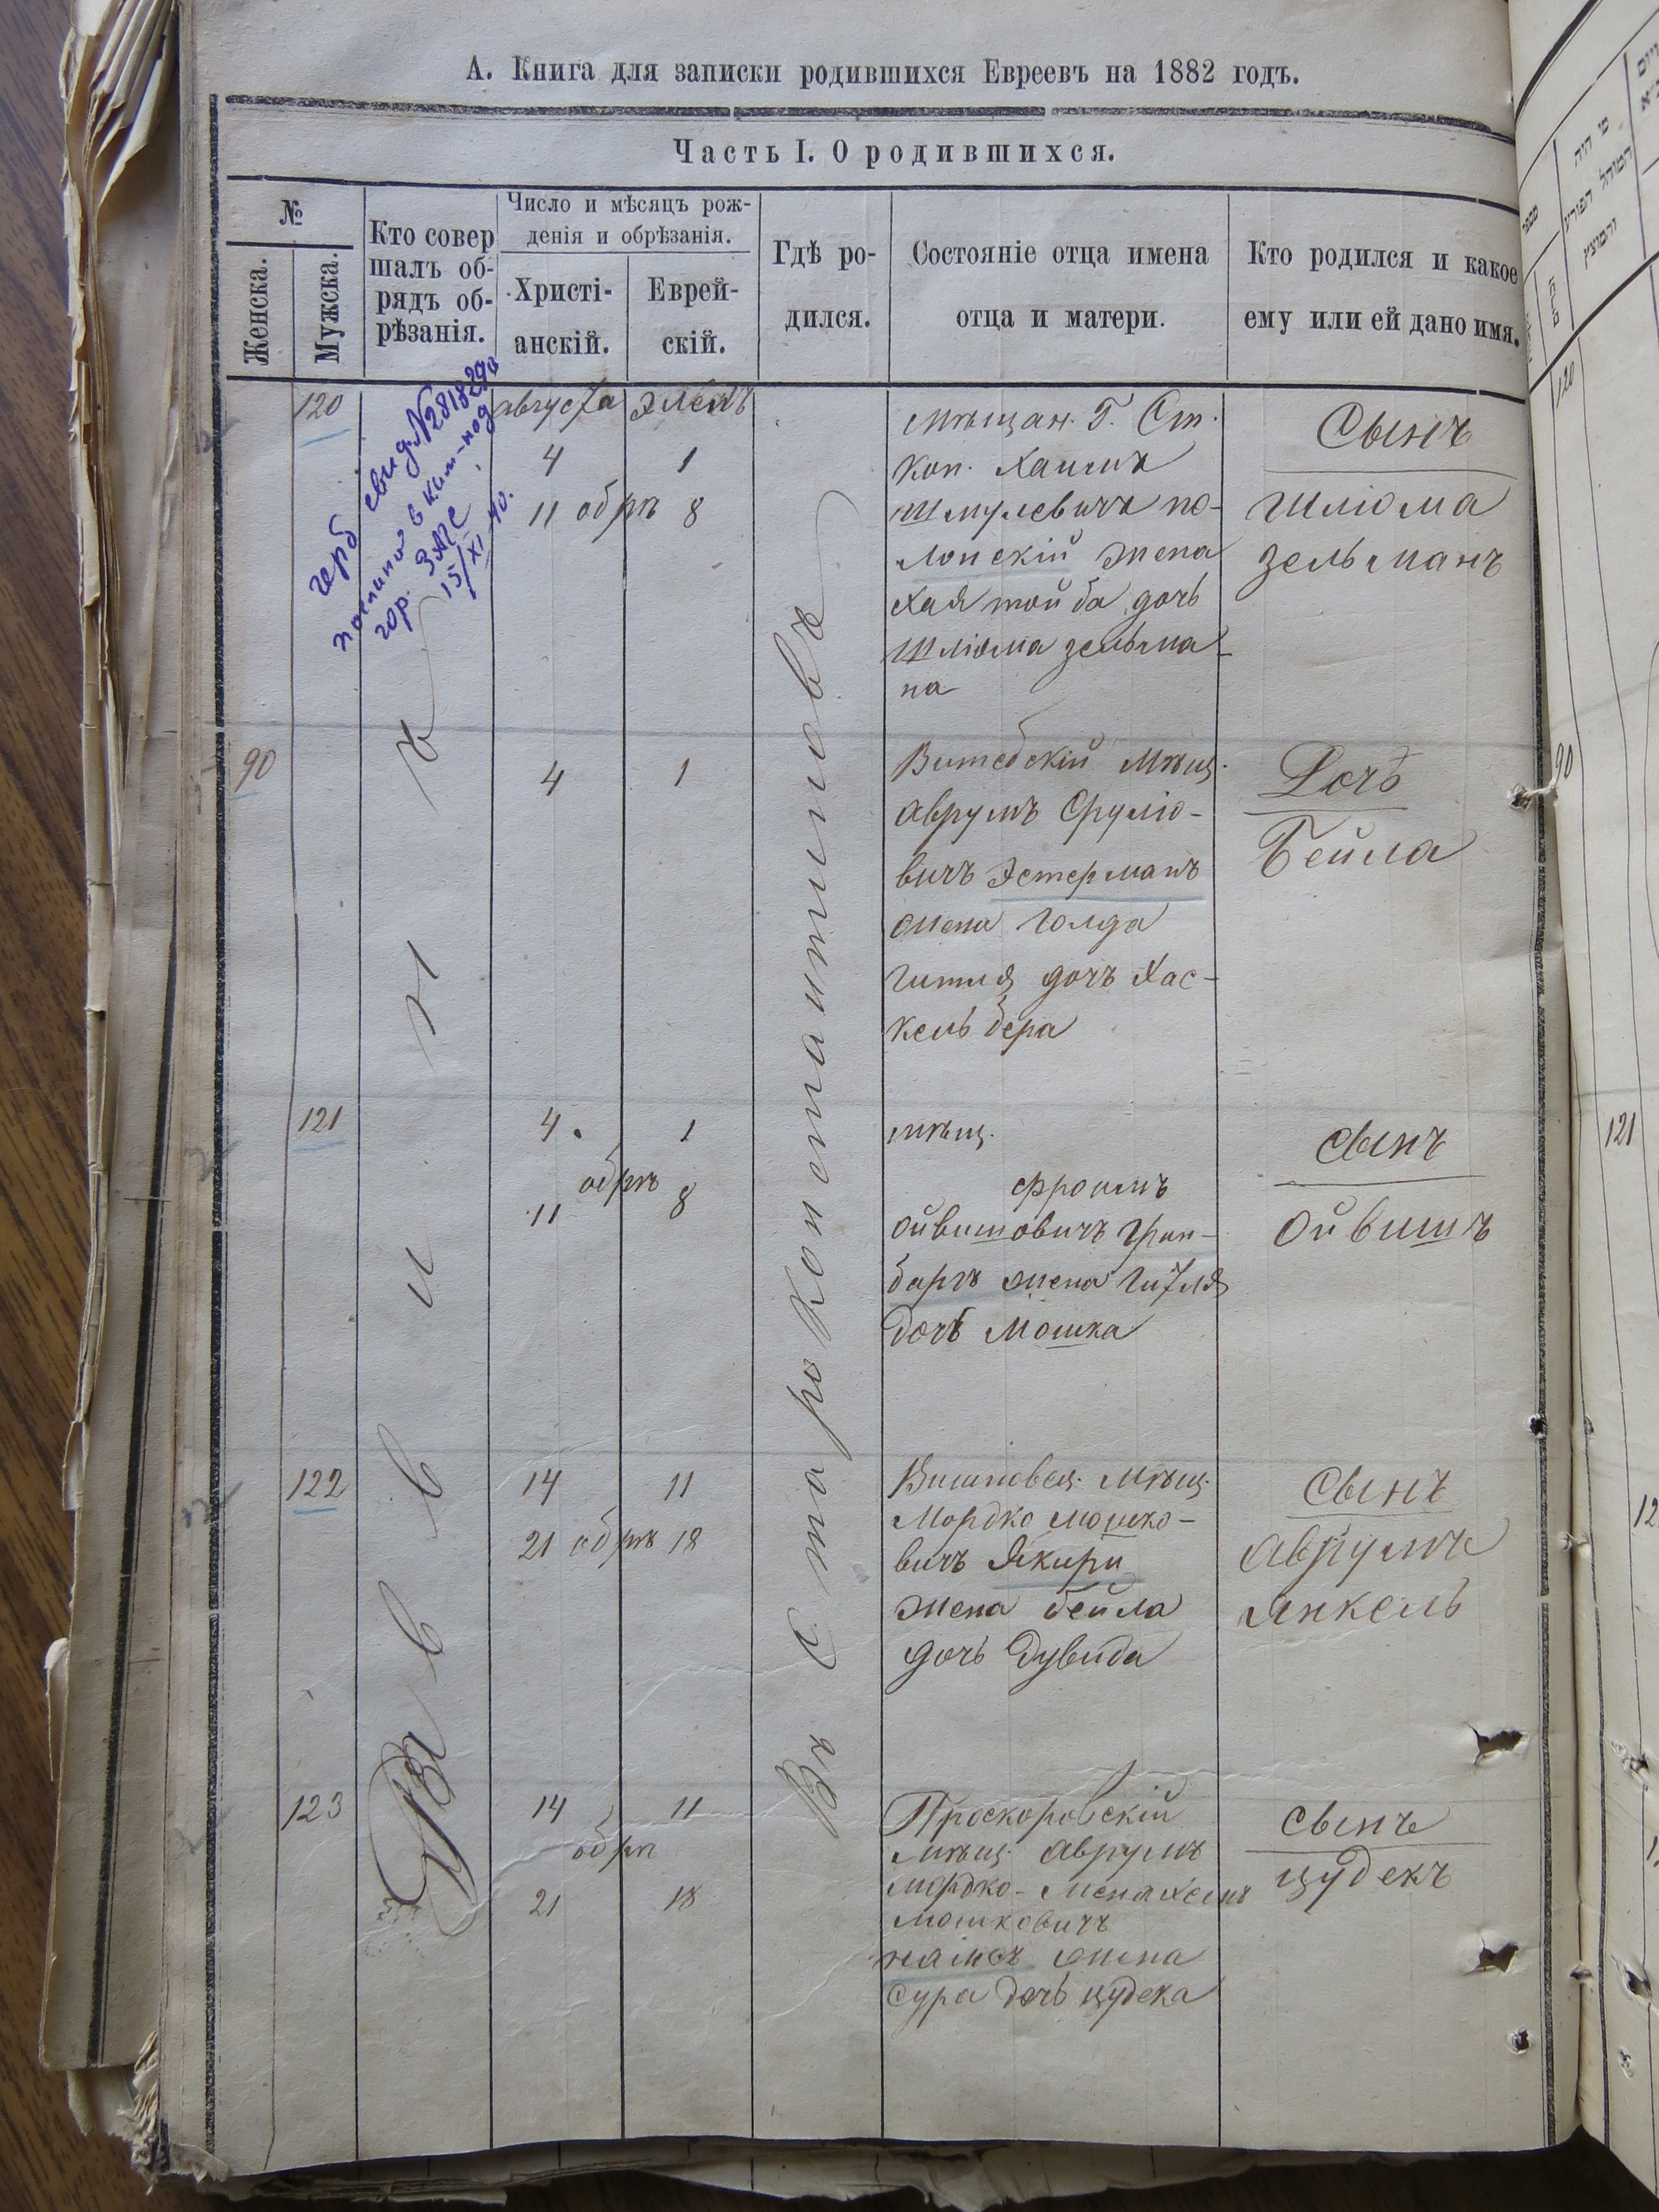 А. Книга для записки родившихся Евреевъ на 1882 годъ.
Часть I. О родившихся.
№
Женска.
Мужска.
Кто совер
шалъ об-
рядъ об-
рѣзанія.
Число и мѣсяцъ рож-
денія и обрѣзанія.
Христі-
анскій.
Еврей-
скій.
Гдѣ ро-
дился.
Состояніе отца имена
отца и матери.
Кто родился и какое
ему или ей дано имя.
120
герб свид. №
15/XI 40.
августа
4
11 обрѣ
Элелъ
1
8
Въ Староконстантиновѣ
мѣщан. Г. Ст.
Кон. Хаимъ
Шмулевичъ по-
лонскій жена
Хая тойба дочь
Шлiома зельма-
на
Сынъ
Шлiома
зельманъ
90
4
1
Витебскій Мѣщ.
Аврумъ Срулiо-
вичъ Эстерманъ
жена Голда
гитля дочь Хас-
кель бера
Дочь
Бейла
121
4
11
обрѣ
1
8
мѣщ.
Фроимъ
Ойвишовичъ Грин-
баргъ жена Гитля
дочь Мошка
Сынъ
Ойвишъ
122
14
21 обрѣ
11
18
Вишневец. Мѣщ.
Мордко Мошко-
вичъ Якири
жена бейла
дочь Дувида
Сынъ
Аврумъ
Янкель
123
14
21
обрѣ
11
18
Проскоровскій
мѣщ. Аврумъ
Мордко-Менахемъ
Мошковичъ
жена
Сура дочь цудека
Сынъ
цудекъ
120
90
121